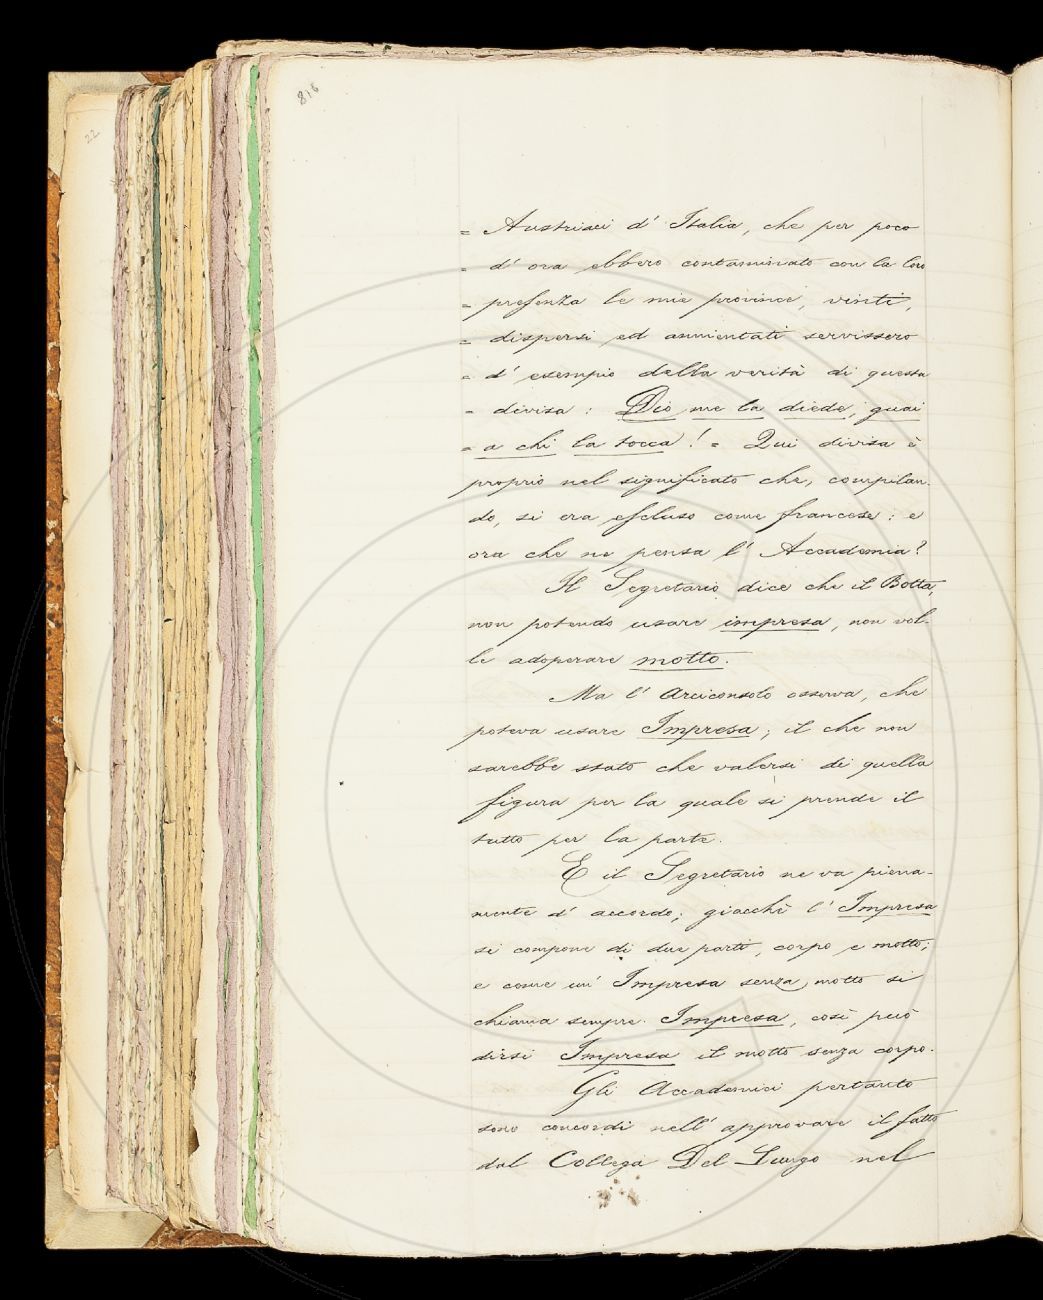 816
22
= Austriaci d' Italia, che per poco
= d' ora ebbero contaminato con la loro
= presenza le mie province, vinti,
= dispersi ed annientati servissero
= d' esempio della verità di questa
= divisa : Dio me la diede, guai
= a chi la tocca ! = Qui divisa è
proprio nel significato che, compilan-
do, si era escluso come francese : e
ora che ne pensa l' Accademia ?
Il Segretario dice che il Botta,
non potendo usare impresa, non vol-
le adoperare motto.
Ma l' Arciconsolo osserva, che
poteva usare Impresa ; il che non
sarebbe stato che valersi di quella
figura per la quale si prende il
tutto per la parte.
E il Segretario ne va piena-
mente d' accordo ; giacchè l' Impresa
si compone di due parti, corpo e motto ;
e come un' Impresa senza motto si
chiama sempre Impresa, così può
dirsi Impresa il motto senza corpo.
Gli Accademici pertanto
sono concordi nell' approvare il fatto
dal Collega Del Lungo nel